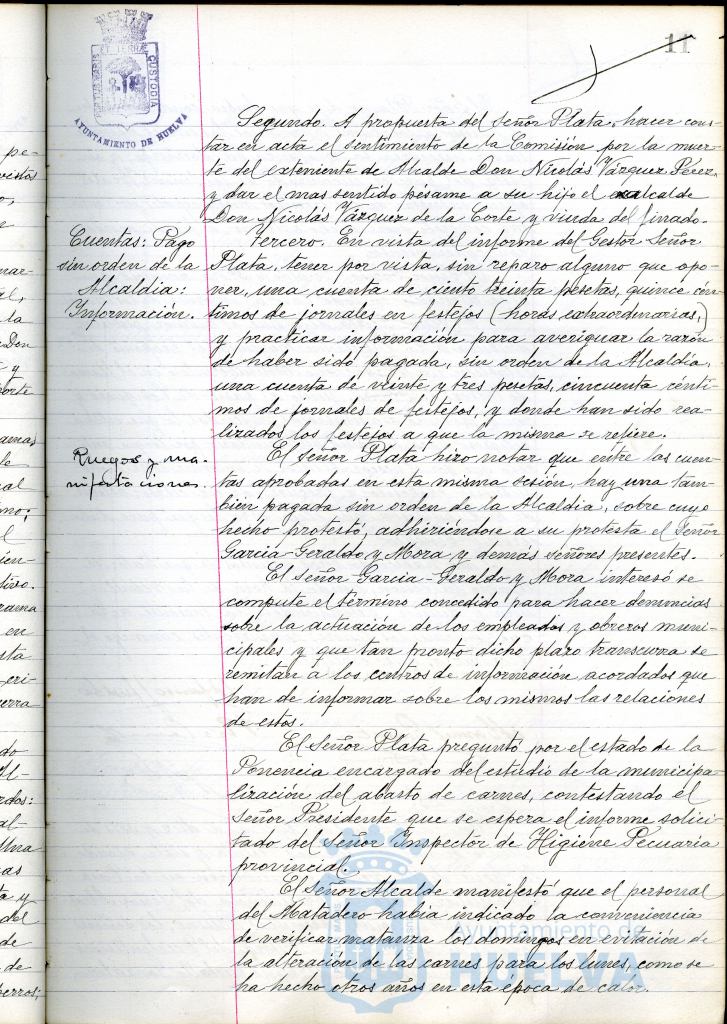 11
PORTUS MARIS ET TERRAE CUSTODIA
AYUNTAMIENTO DE HUELVA
Segundo. A propuesta del Señor Plata, hacer cons-
tar en acta el sentimiento de la Comisión por la muer-
te del exteniente de Alcalde Don Nicolás Vázquez Pérez,
y dar el mas sentido pésame a su hijo el exalcalde
Don Nicolás Vázquez de la Corte y viuda del finado.
Cuentas: Pago
sin orden de la
Alcaldia:
Información.
Tercero. En vista del informe del Gestor Señor
Plata, tener por vista, sin reparo alguno que opo-
ner, una cuenta de ciento treinta pesetas, quince cén-
timos de jornales en festejos (horas extraordinarias,)
y practicar información para averiguar la razón
de haber sido pagada, sin orden de la Alcaldia,
una cuenta de veinte y tres pesetas, cincuenta cénti-
mos de jornales de festejos, y donde han sido rea-
lizados los festejos a que la misma se refiere.
Ruegos y ma-
nifestaciones.
El Señor Plata hizo notar que entre las cuen-
tas aprobadas en esta misma sesión, hay una tam-
bien pagada sin orden de la Alcaldia, sobre cuyo
hecho protestó, adhiriéndose a su protesta el Señor
Garcia-Geraldo y Mora y demás señores presentes.
El Señor Garcia-Geraldo y Mora interesó se
compute el término concedido para hacer denuncias
sobre la actuación de los empleados y obreros muni-
cipales y que tan pronto dicho plazo transcurra se
remitan a los centros de información acordados que
han de informar sobre los mismos las relaciones
de estos.
El Señor Plata preguntó por el estado de la
Ponencia encargado del estudio de la municipa-
lización del abasto de carnes, contestando el
Señor Presidente que se espera el informe solici-
tado del Señor Inspector de Higiene Pecuaria
provincial.
El Señor Alcalde manifestó que el personal
del Matadero habia indicado la conveniencia
de verificar matanza los domingos en evitación de
la alteración de las carnes para los lunes, como se
ha hecho otros años en esta época de calor.
Ayuntamiento de
HUELVA